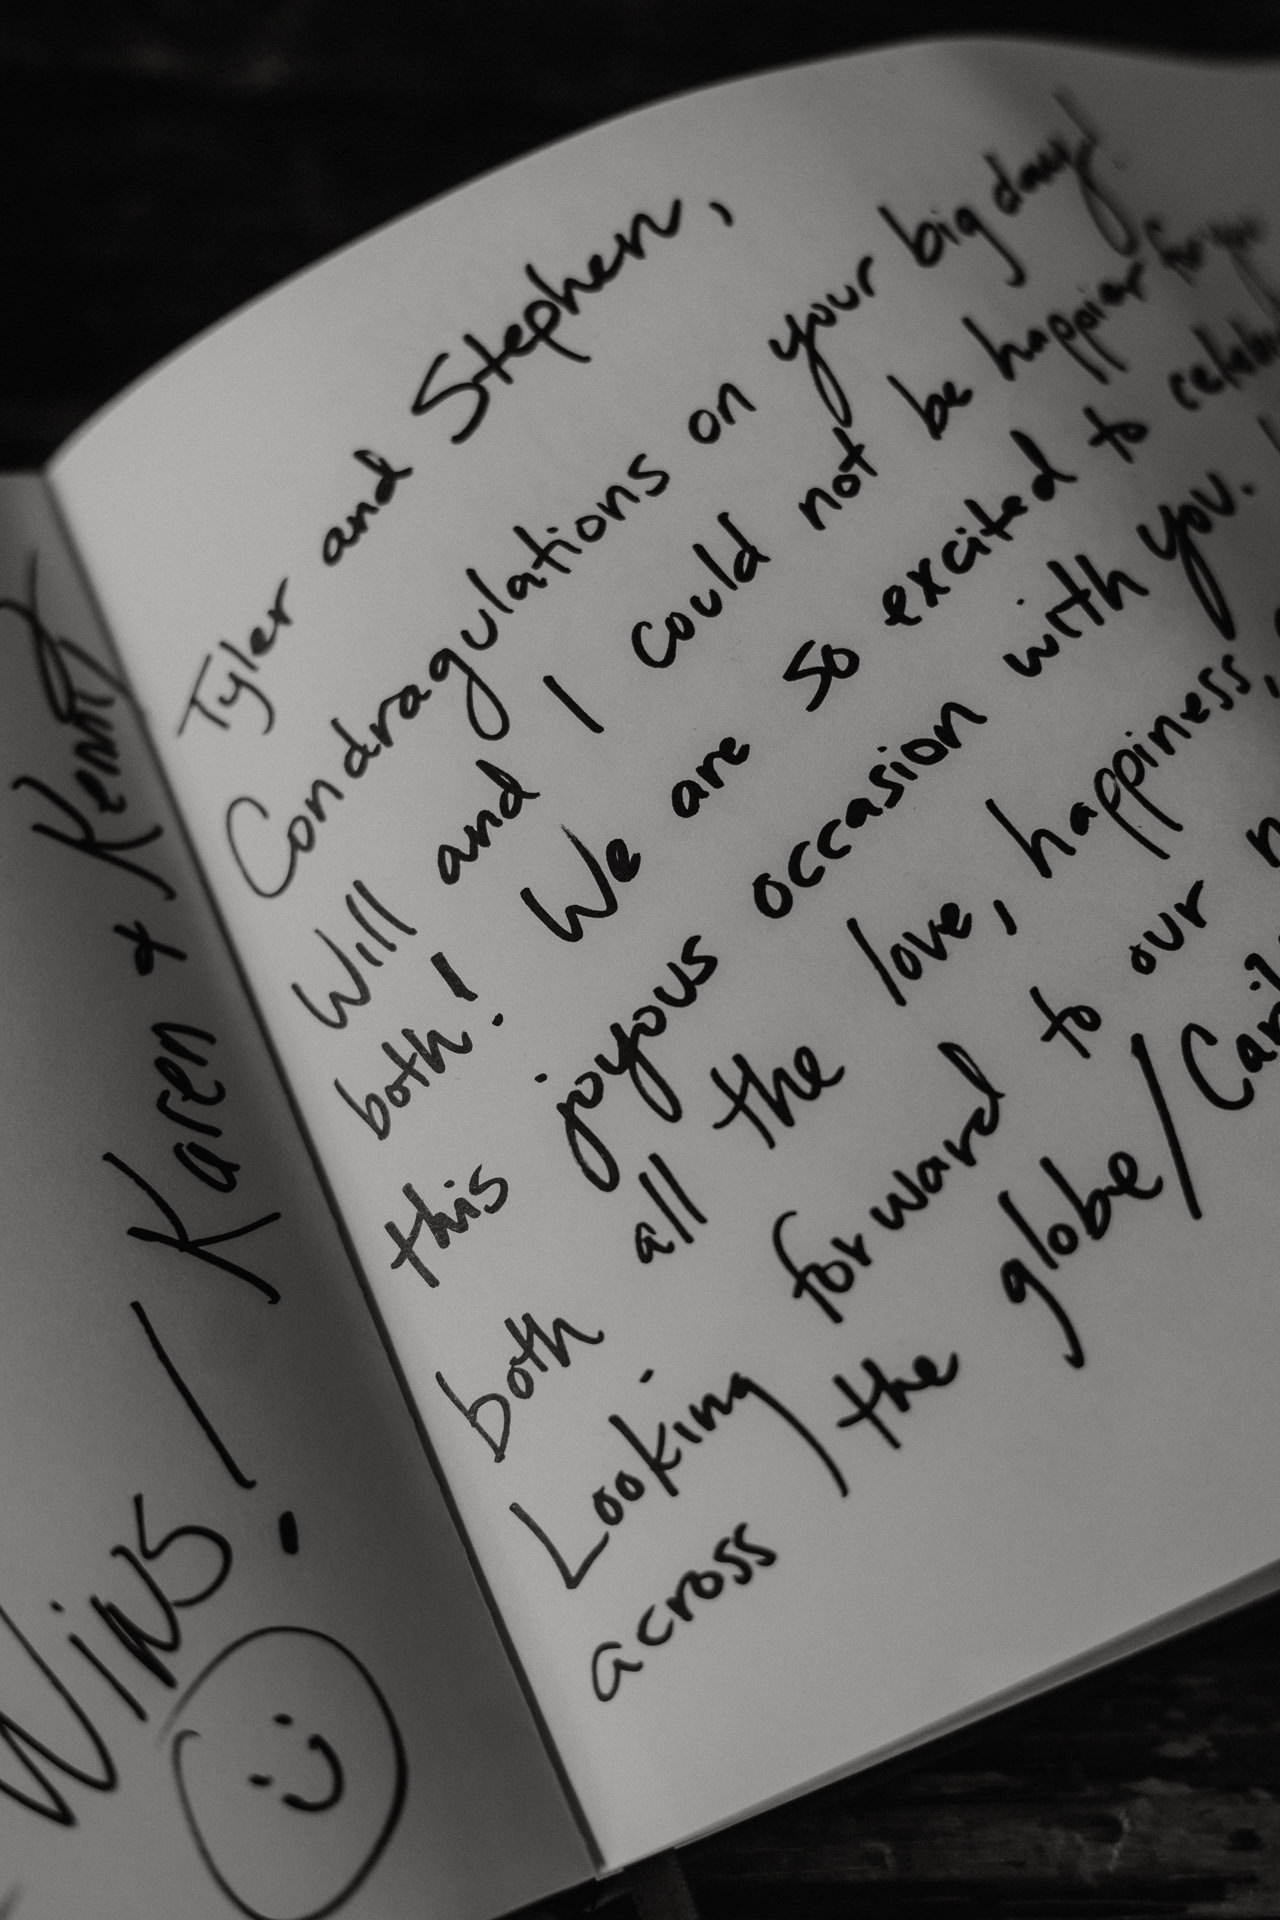 Wins!
Karen + Kenny
Tyler and Stephen,
Condragulations on your big day!
Will and I could not be happier for you
both! We are so excited to
this joyous occasion with you.
both all the love, happiness,
Looking forward to our
across the globe/